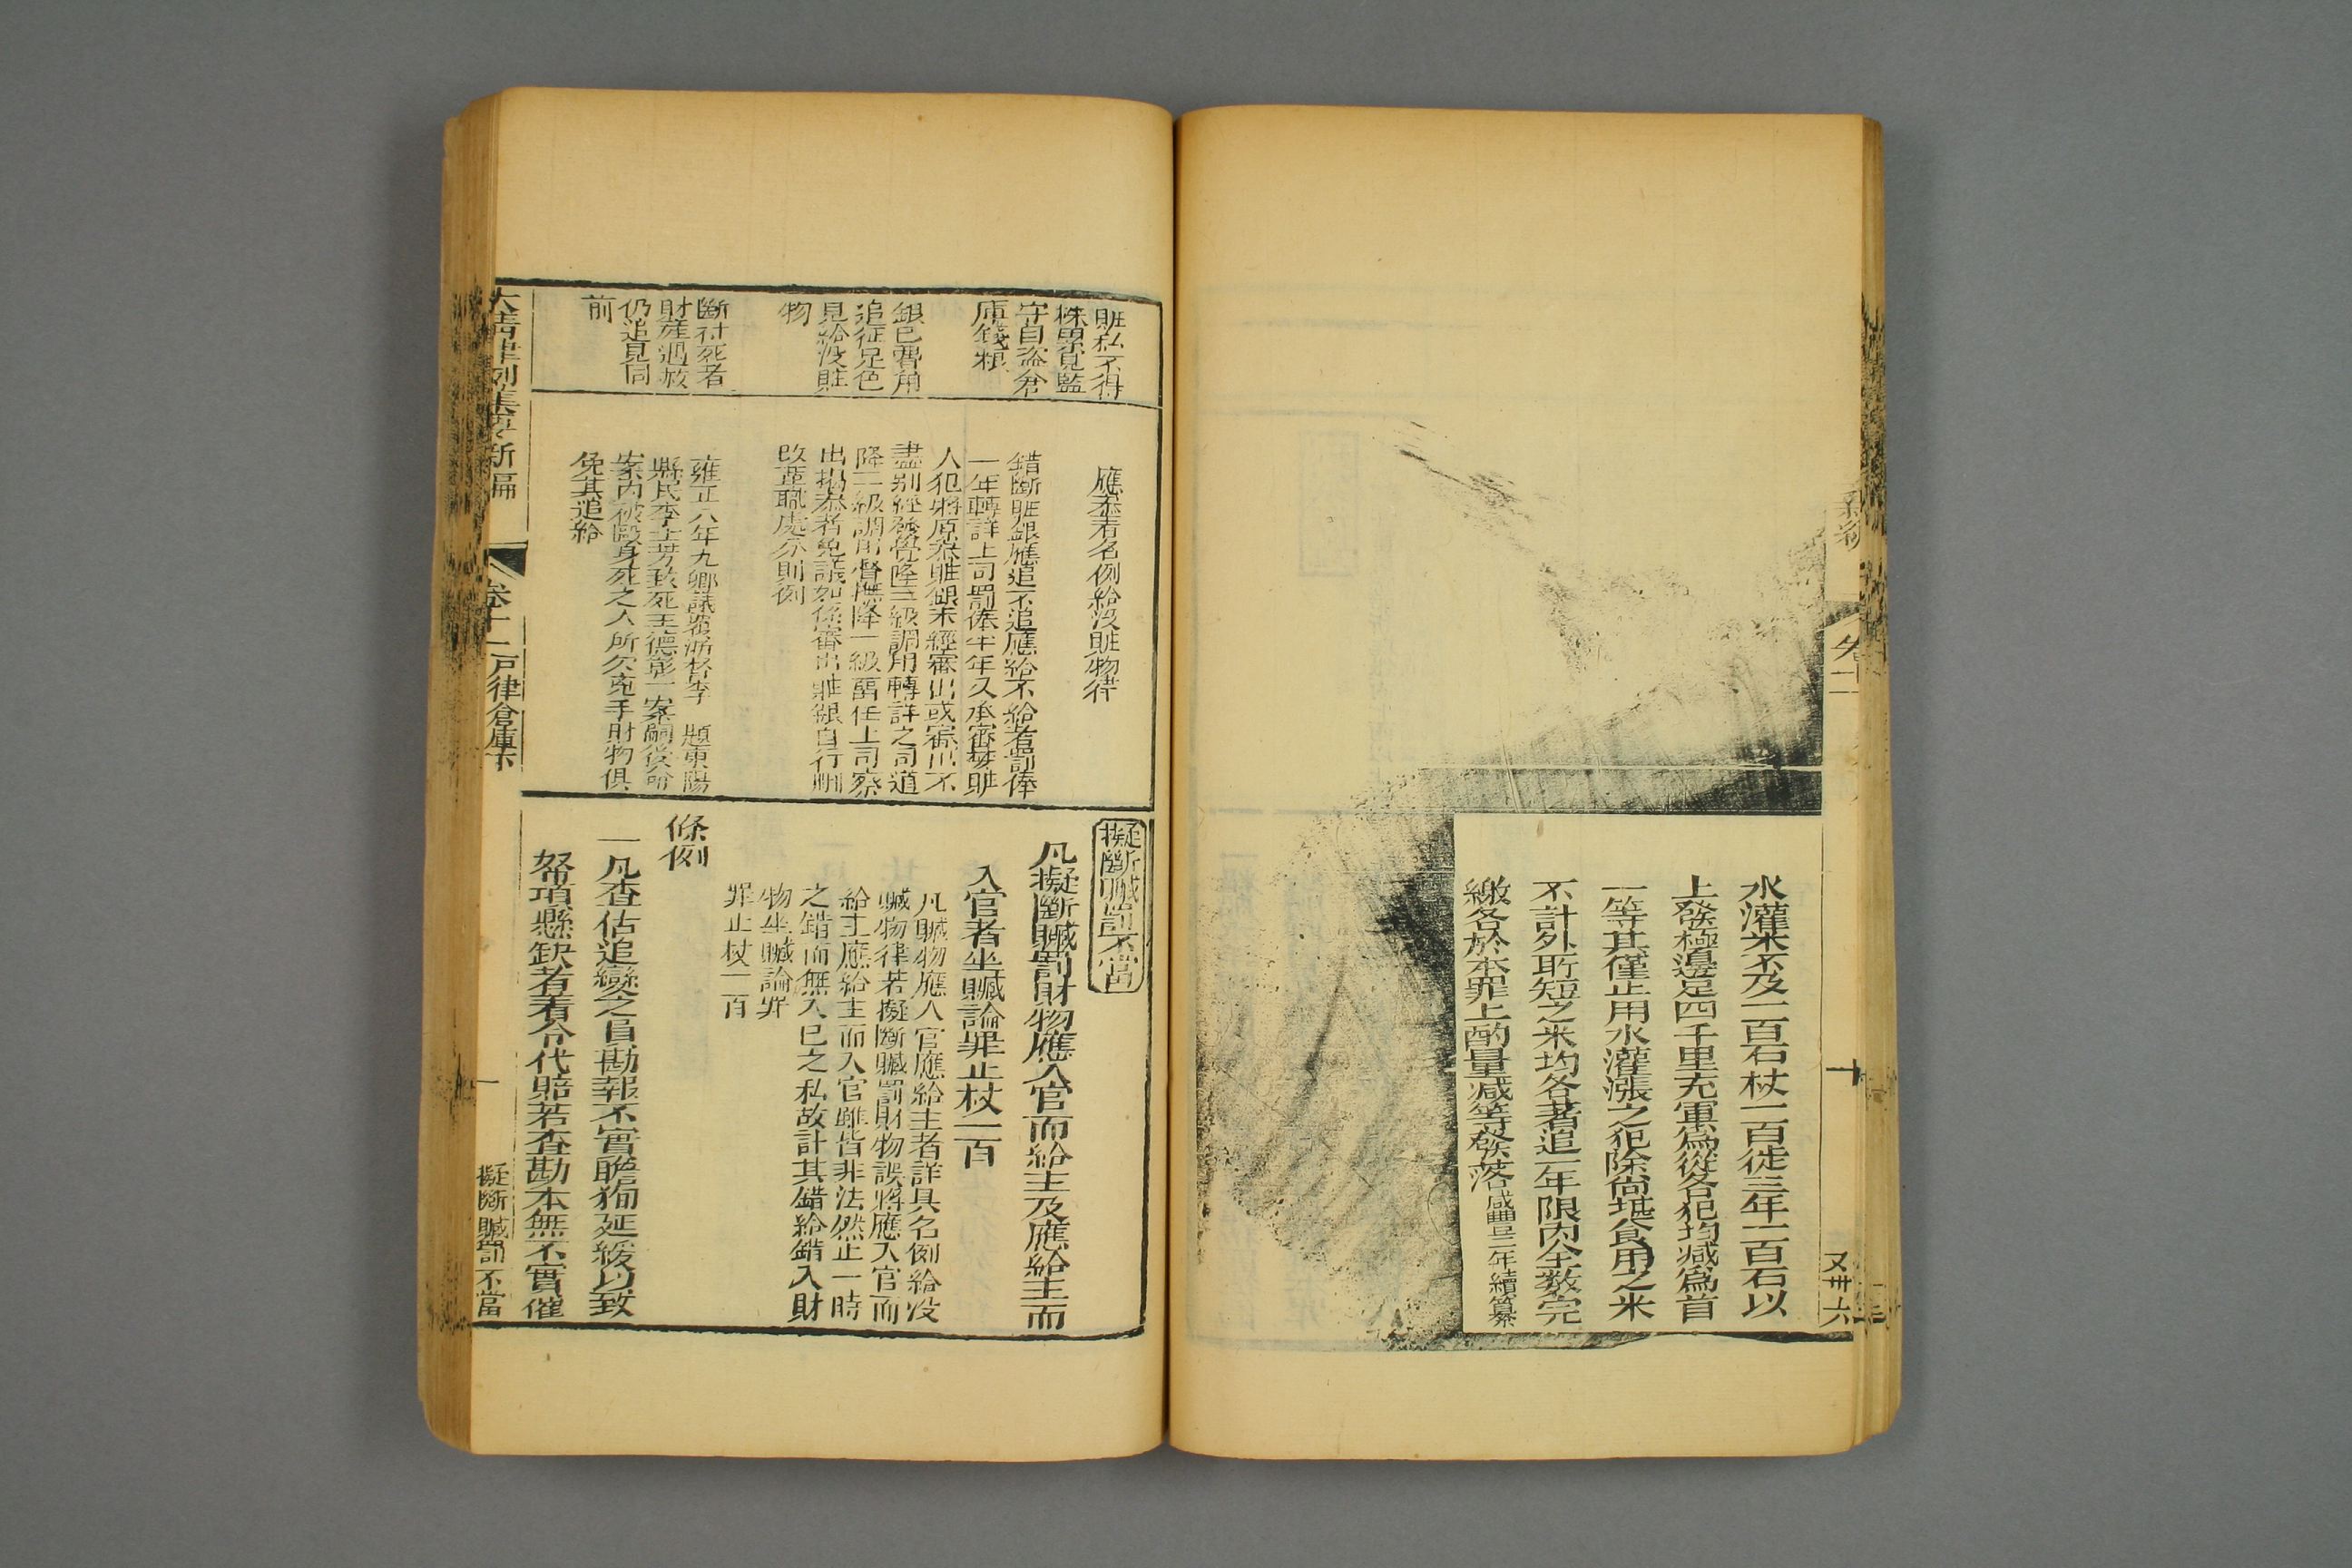 水灌米不及一百石杖一百徒三年一百石以
上發極邊足四千里充軍爲從各犯均减爲首
一等其僅止用水灌漲之犯除尚堪食用之米
不計外所短之米均各著追一年限内全數完
繳各於本罪上酌量减等發落咸豐二年續纂
又卅六
賍私不得
株累覓監
守自盜倉
庫錢粮
銀已費用
追征足色
見給没賍
物
斷付死者
財產遇赦
仍追見同
前
應叅看名例給没賍物律
錯斷賍銀應追不追應給不給者罰俸
一年轉詳上司罰俸半年又承審婪賍
人犯將原叅賍銀未經審出或審出不
盡别經發覺降三級調用轉詳之司道
降二級調用督撫降一級畱任上司察
出揭叅者免議如係審出賍銀自行删
改革職處分則例
雍正八年九卿議覆浙督李 題東陽
縣民李士芳致死王德彰一案嗣後命
案内被毆身死之人所欠兇手財物俱
免其追給
擬斷贓罰不當
凡擬斷贓罰財物應入官而給主及應給主而
入官者坐贓論罪止杖一百
凡贓物應入官應給主者詳具名例給没
贓物律若擬斷贓罰財物誤將應入官而
給主應給主而入官雖皆非法然止一時
之錯而無入已之私故計其錯給錯入財
物坐贓論罪
罪止杖一百
條例
一凡查估追變之員勘報不實瞻狥延緩以致
帑項懸缺者着令代賠若查勘本無不實催
大清律例集要新編
卷十一戶律倉庫下
擬斷贓罰不當